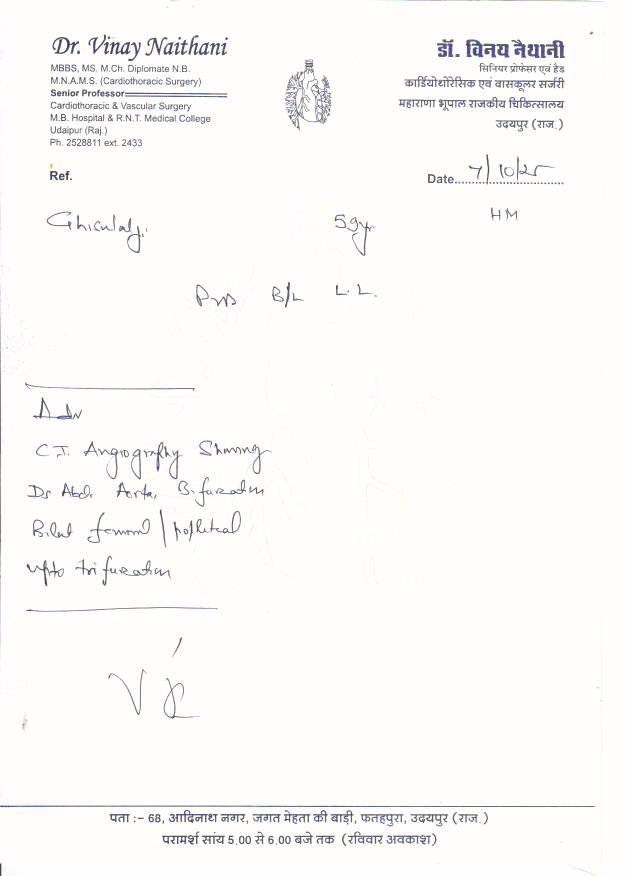 Dr. Vinay Naithani
MBBS, MS. M.Ch. Diplomate N.B.
M.N.A.M.S. (Cardiothoracic Surgery)
Senior Professor
Cardiothoracic & Vascular Surgery
M.B. Hospital & R.N.T. Medical College
Udaipur (Raj.)
Ph. 2528811 ext. 2433
डॉ. विनय नैथानी
सिनियर प्रोफेसर एवं हैड
कार्डियोथोरेसिक एवं वासकूलर सर्जरी
महाराणा भूपाल राजकीय चिकित्सालय
उदयपुर (राज.)
Ref.
Date 7/10/25
59yr HM
B/L L.L.
Adv
C.T. Angiography Showing
Abd. Aorta, Bifurcation
Bilat femoral / popliteal
upto trifurcation
पता :– 68, आदिनाथ नगर, जगत मेहता की बाड़ी, फतहपुरा, उदयपुर (राज.)
परामर्श सांय 5.00 से 6.00 बजे तक (रविवार अवकाश)